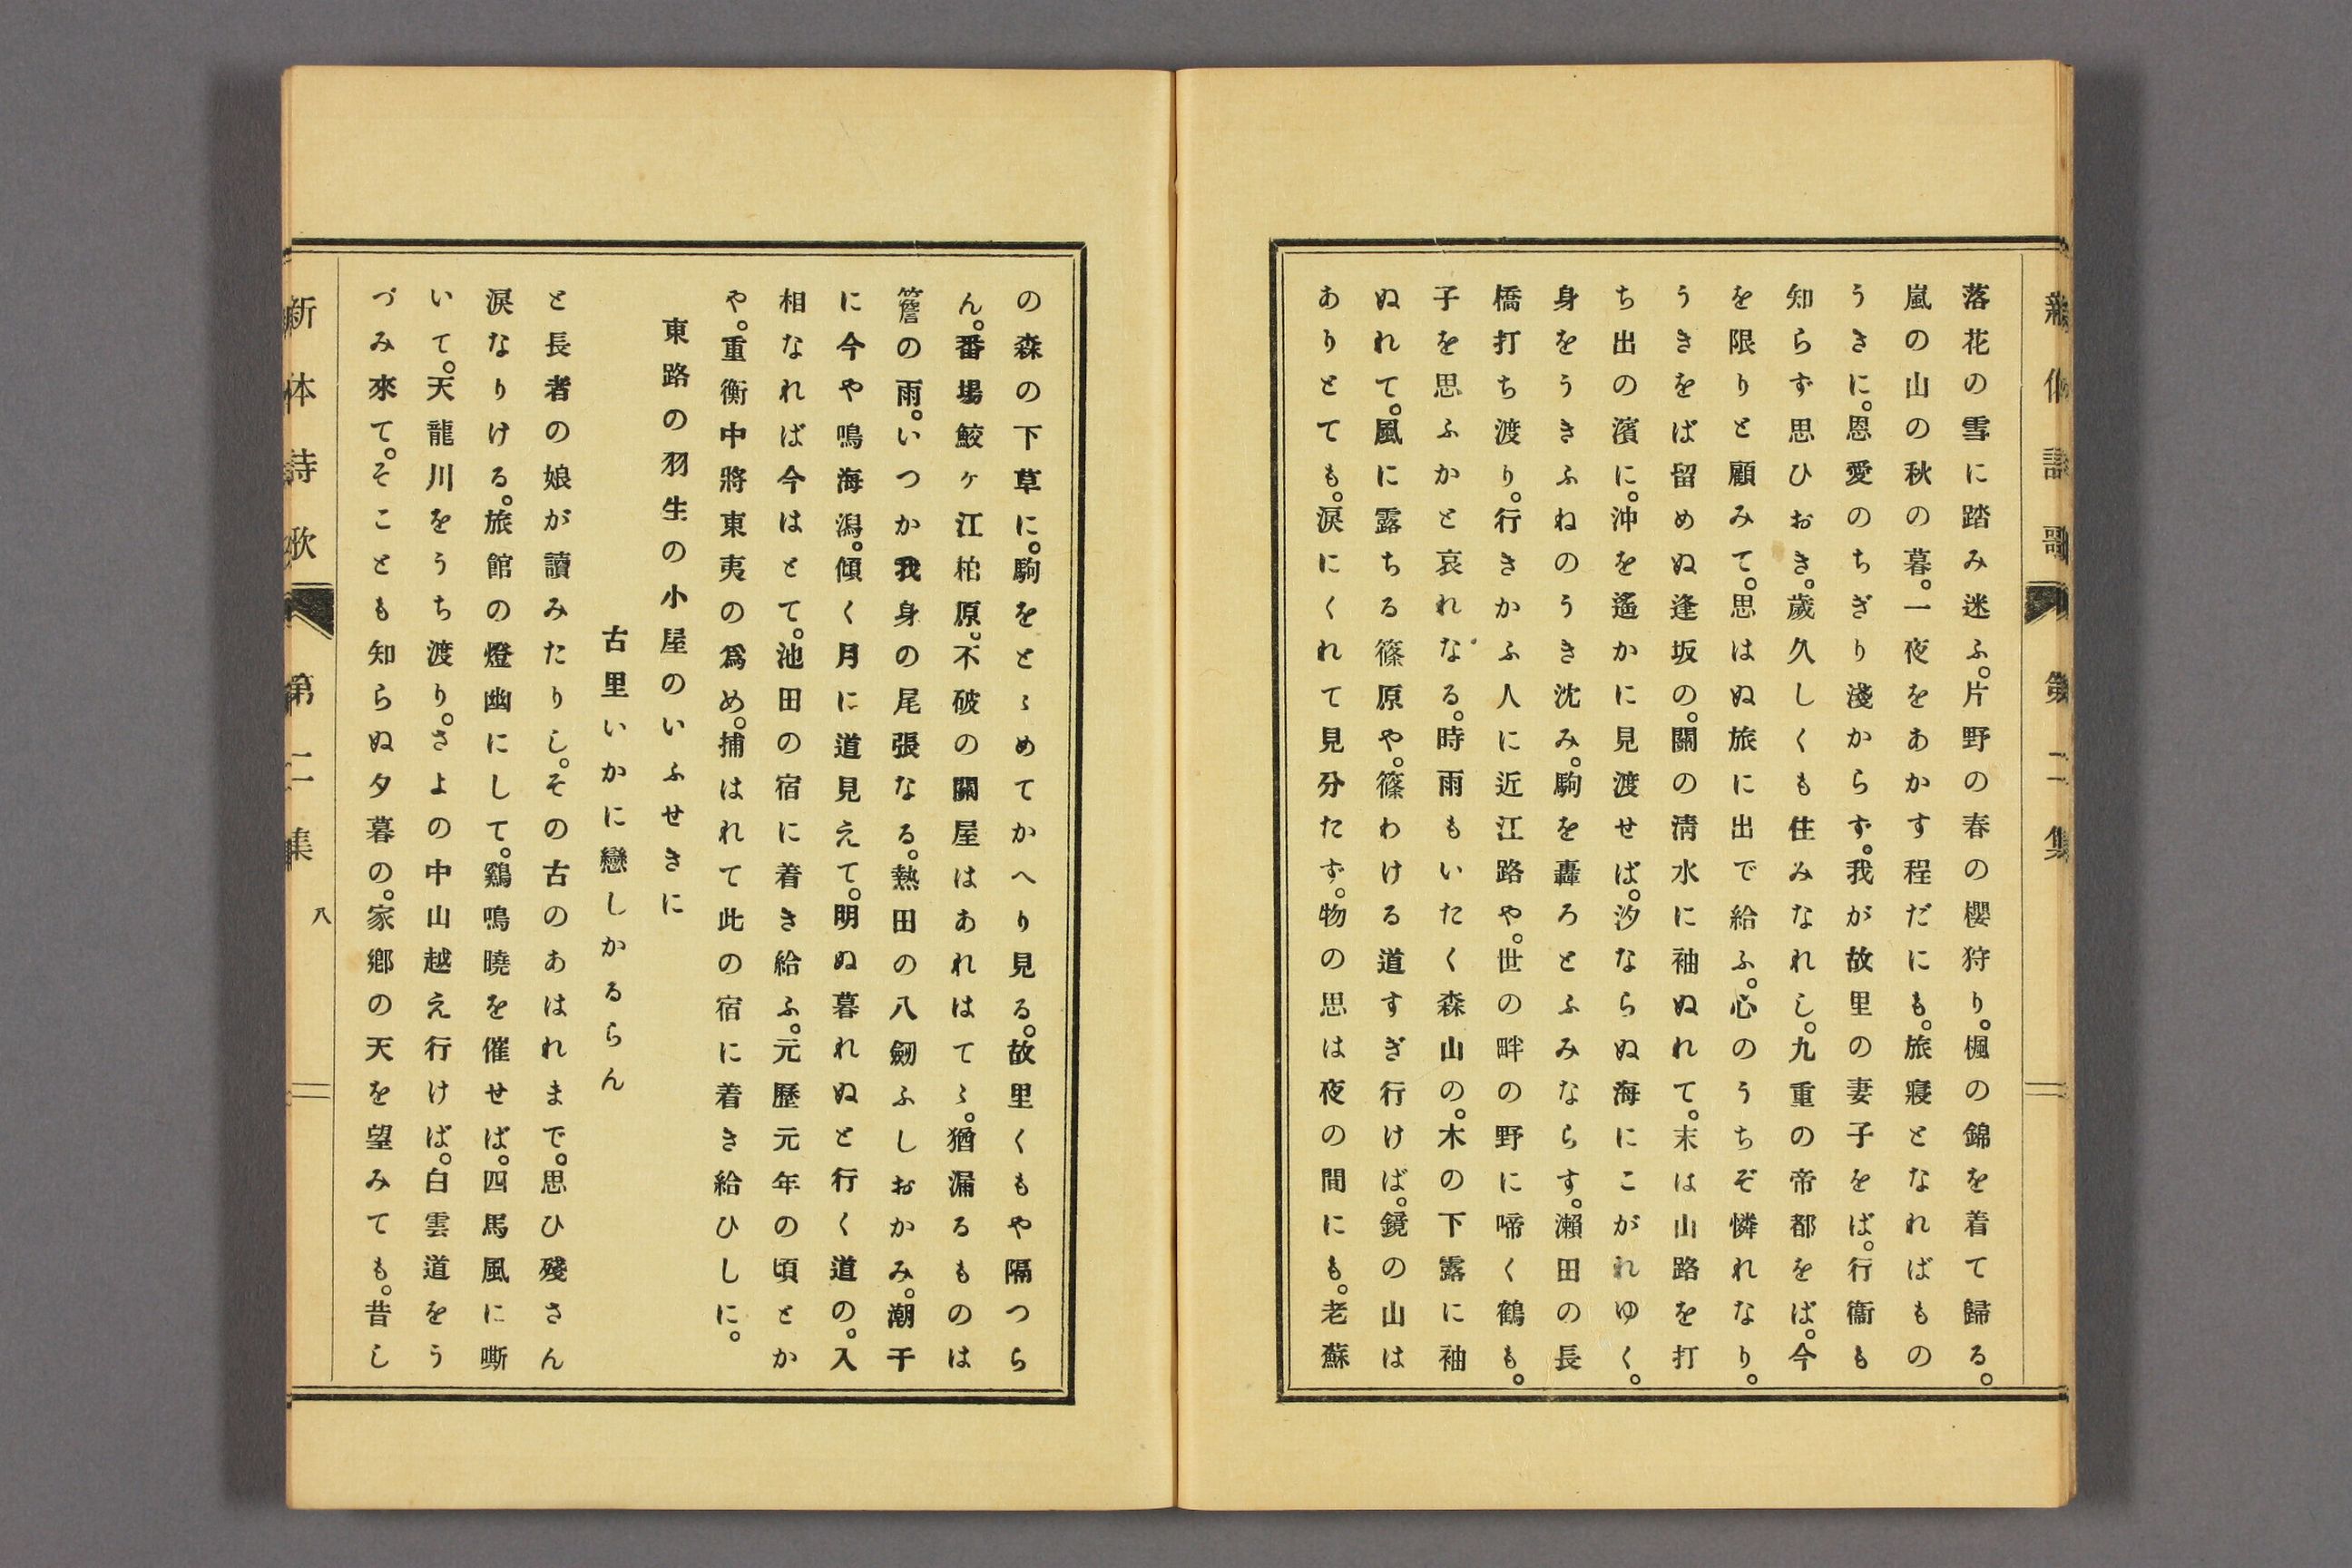 落花の雪に踏み迷ふ。片野の春の櫻狩り。楓の錦を着て歸る。
嵐の山の秋の暮。一夜をあかす程だにも。旅寢となればもの
うきに。恩愛のちぎり淺からず。我が故里の妻子をば。行衞も
知らず思ひおき。歲久しくも住みなれし。九重の帝都をば。今
を限りと顧みて。思はぬ旅に出で給ふ。心のうちぞ憐れなり。
うきをば留めぬ逢坂の。關の淸水に袖ぬれて。末は山路を打
ち出の濱に。沖を遙かに見渡せば。汐ならぬ海にこがれゆく。
身をうきふねのうき沈み。駒を轟ろとふみならす。瀨田の長
橋打ち渡り。行きかふ人に近江路や。世の畔の野に啼く鶴も。
子を思ふかと哀れなる。時雨もいたく森山の。木の下露に袖
ぬれて。風に露ちる篠原や。篠わける道すぎ行けば。鏡の山は
ありとても。淚にくれて見分たず。物の思は夜の間にも。老蘇
の森の下草に。駒をとゞめてかへり見る。故里くもや隔つら
ん。番場鮫ヶ江柏原。不破の關屋はあれはてゝ。猶漏るものは
簷の雨。いつか我身の尾張なる。熱田の八劒ふしおかみ。潮干
に今や鳴海潟。傾く月に道見えて。明ぬ暮れぬと行く道の。入
相なれば今はとて。池田の宿に着き給ふ。元歷元年の頃とか
や。重衡中將東夷の爲め。捕はれて此の宿に着き給ひしに。
東路の羽生の小屋のいふせきに
古里いかに戀しかるらん
と長者の娘が讀みたりし。その古のあはれまで。思ひ殘さん
淚なりける。旅館の燈幽にして。鷄鳴曉を催せば。四馬風に嘶
いて。天龍川をうち渡り。さよの中山越え行けば。白雲道をう
づみ來て。そことも知らぬ夕暮の。家鄕の天を望みても。昔し
新体詩歌 第二集 八